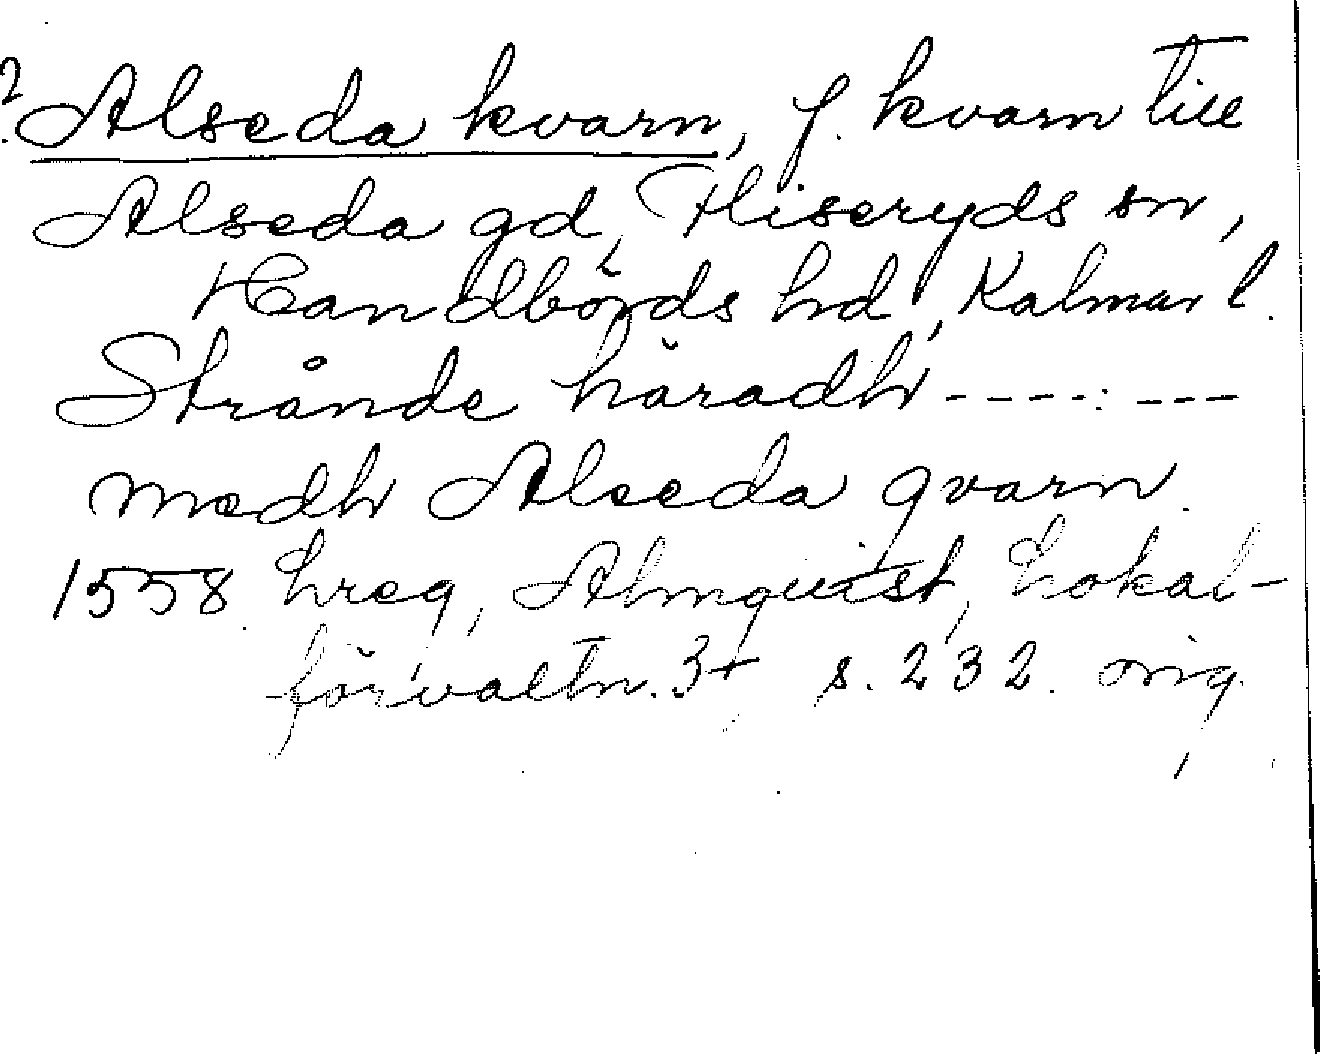 ? Alseda kvarn, f. kvarn till
Alseda gd, Fliseryds sn,
Handbörds hd, Kalmar l.
Strånde häradh ----: ---
medh Alseda qvarn.
1558 hreg, Almquist, Lokal-
förvaltn. 3+ s. 232. orig.